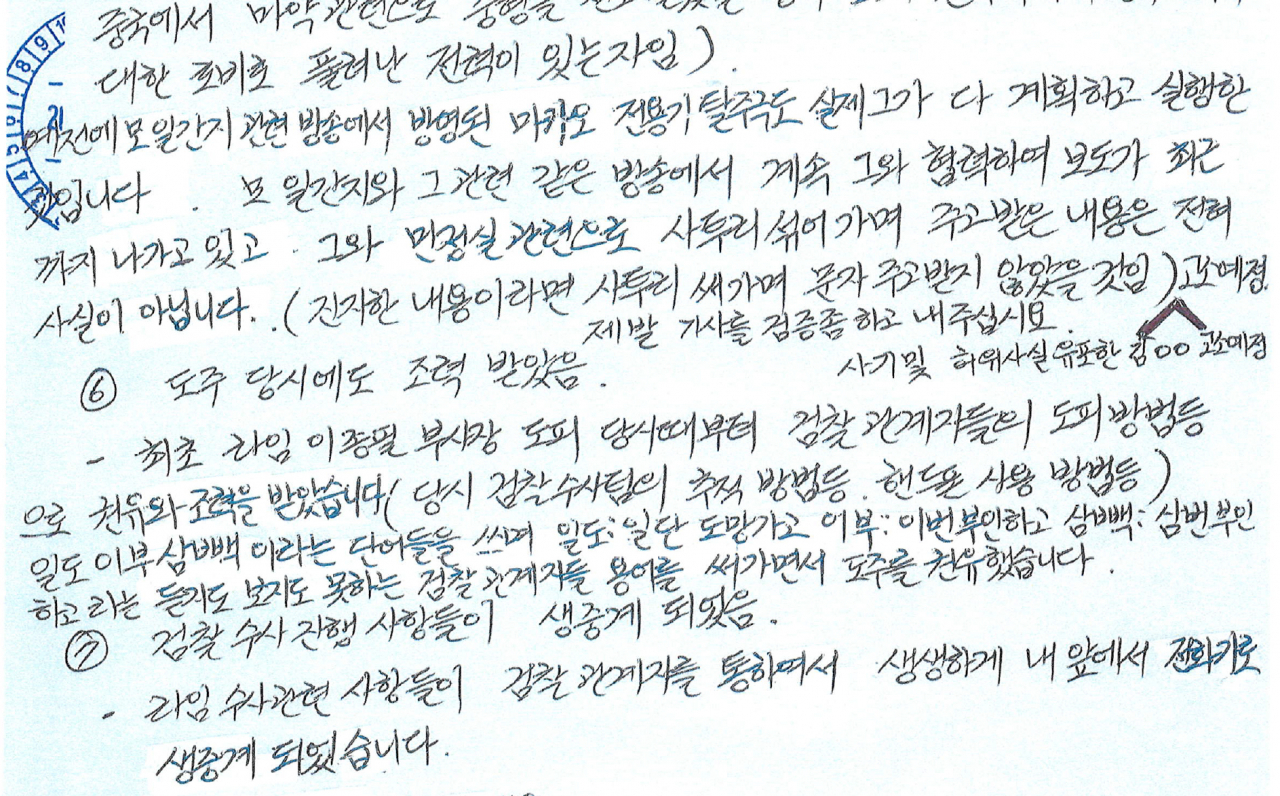 중국에서 마약관련으로 중형을
대한 로비로 풀려난 전력이 있는자임)
예전에 모 일간지 관련 방송에서 방영된 마카오 전용기 탈주극도 실제 그가 다 계획하고 실행한
것입니다. 모 일간지와 그 관련 같은 방송에서 계속 그와 협력하여 보도가 최근
까지 나가고 있고. 그와 민정실 관련으로 사투리 섞어가며 주고받은 내용은 전혀
사실이 아닙니다. (진지한 내용이라면 사투리 써가며 문자 주고받지 않았을 것임) 고소예정.
제발 기사를 검증좀 하고 내주십시요.
사기및 허위사실 유포한 김○○ 고소예정
⑥ 도주 당시에도 조력 받았음.
- 최초 라임 이종필 부사장 도피 당시때부터 검찰 관계자들의 도피방법등
으로 권유와 조력을 받았습니다 (당시 검찰수사팀의 추적 방법등. 핸드폰 사용 방법등)
일도 이부 삼빽 이라는 단어들을 쓰며 일도: 일단 도망가고 이부: 이번부인하고 삼빽: 삼번부인
하고 라는 듣지도 보지도 못하는 검찰 관계자들 용어를 써가면서 도주를 권유했습니다.
⑦ 검찰 수사 진행 사항들이 생중계 되었음.
- 라임 수사관련 사항들이 검찰 관계자를 통하여서 생생하게 내 앞에서 전화기로
생중계 되었습니다.